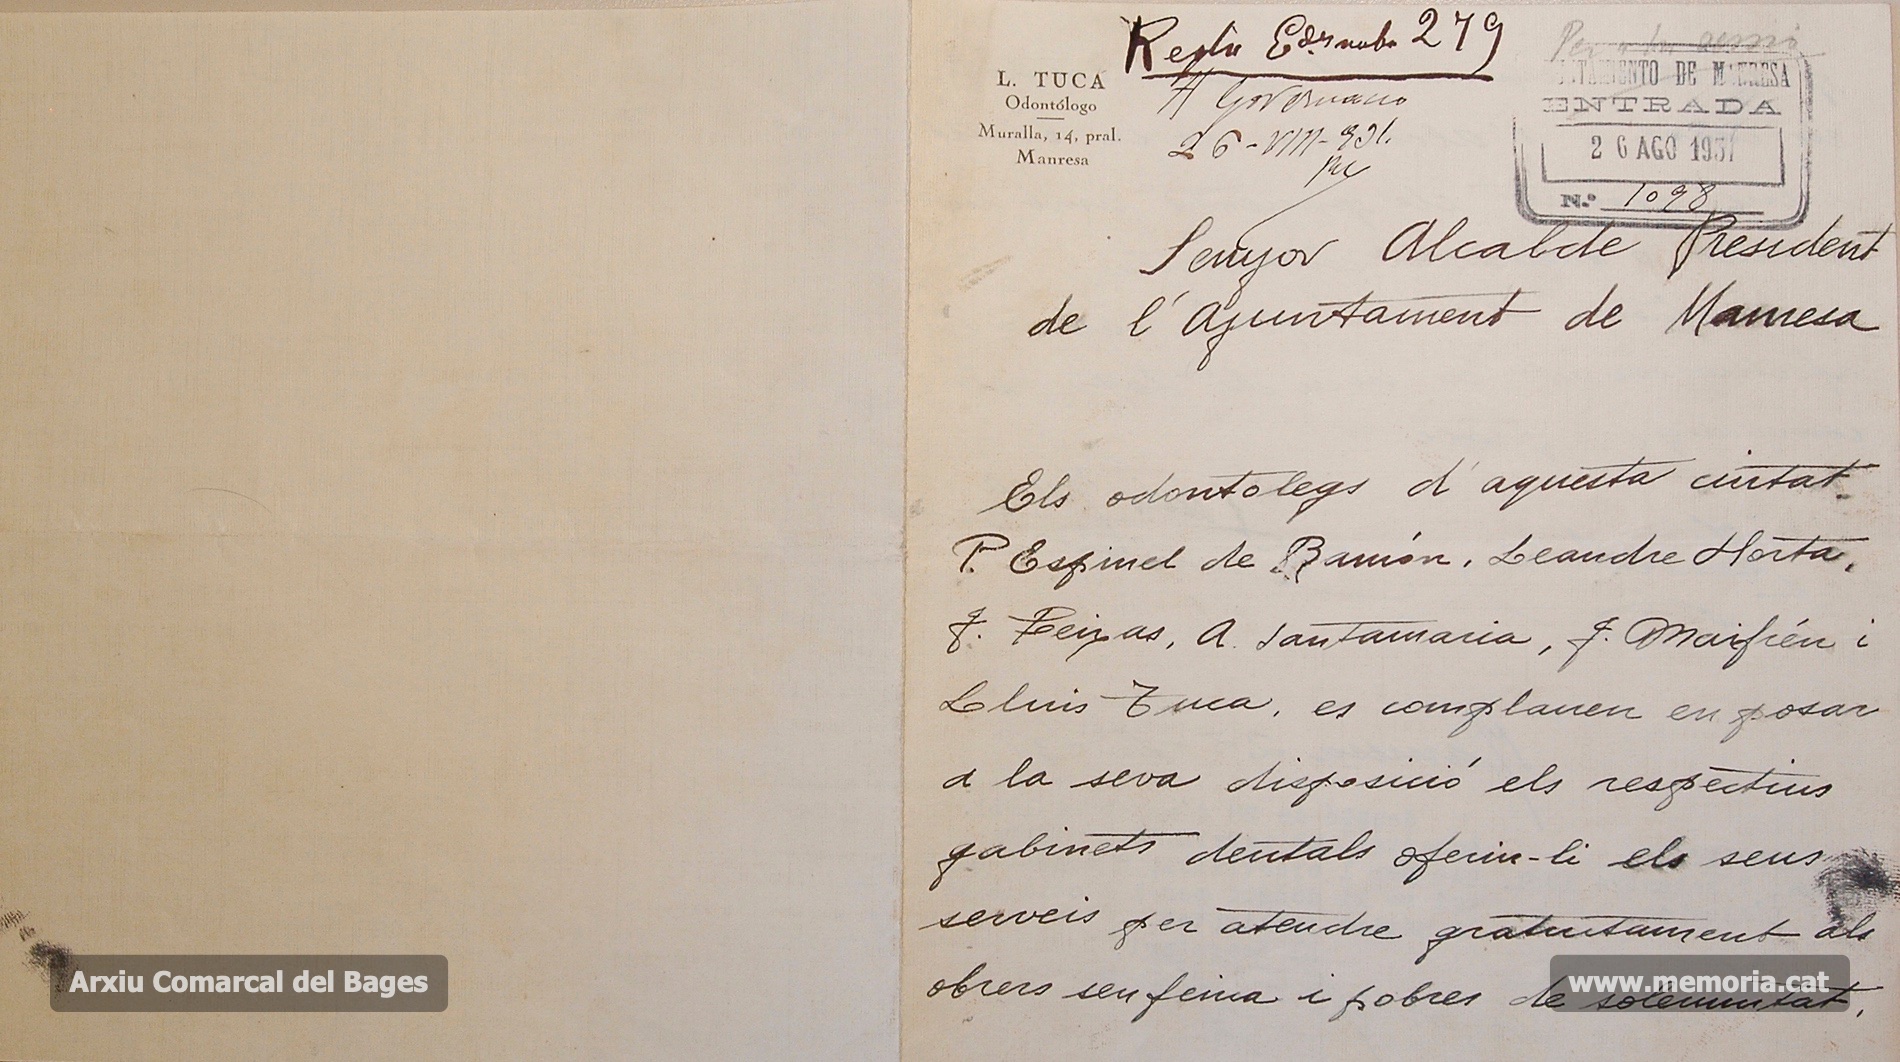 279
L. TUCA
Odontólogo
Muralla, 14, pral.
Manresa
A Governació
26-VIII-931.
Per a la sessió
TAMIENTO DE MANRESA
ENTRADA
26 AGO 1931
N.º 1098
Senyor Alcalde President
de l'Ajuntament de Manresa
Els odontolegs d'aquesta ciutat
P. Espinel de Ramón, Leandre Horta,
J. Teixas, A. Santamaria, J. Maifrén i
Lluis Tuca, es complauen en posar
a la seva disposició els respectius
gabinets dentals oferin-li els seus
serveis per atendre gratuitament als
obrers sen feina i pobres de solemnitat,
Arxiu Comarcal del Bages
www.memoria.cat